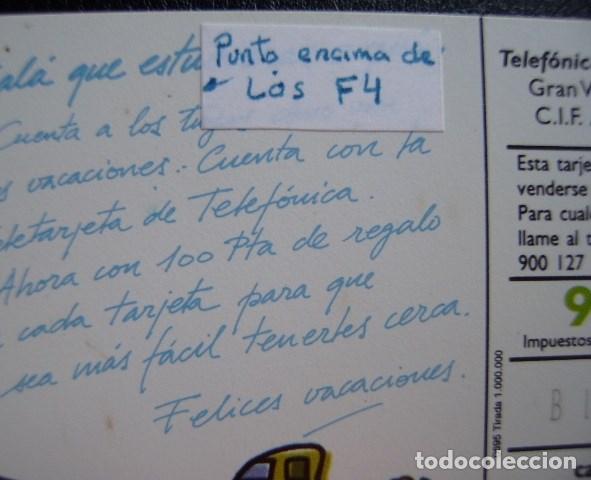 alá que estu
Punto encima de
Los F4
Cuenta a los tu
s vacaciones. Cuenta con la
letarjeta de Telefónica.
Ahora con 100 Pta de regalo
cada tarjeta para que
sea más fácil tenertes cerca.
Felices vacaciones.
Telefónic
Gran V
C.I.F.
Esta tarje
venderse
Para cual
llame al t
900 127
9
Impuestos
B L
095 Tirada 1.000.000
ca
todocoleccion